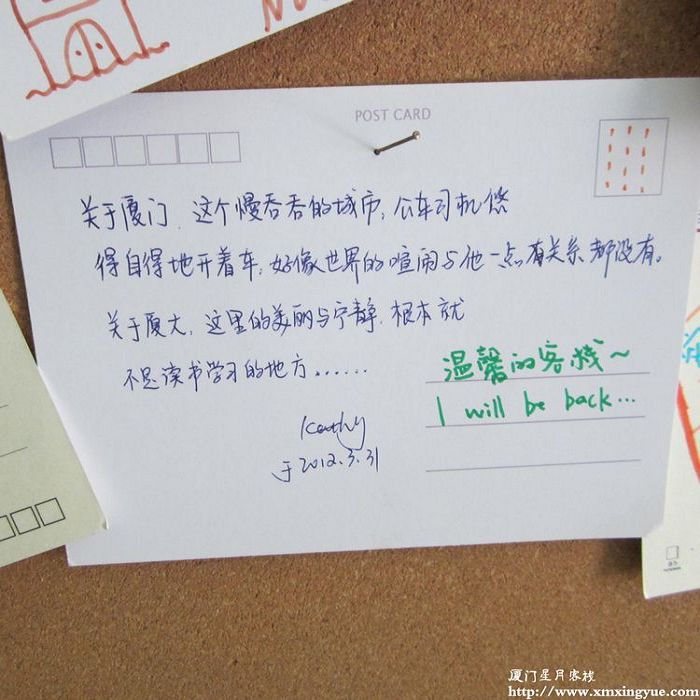 POST CARD
关于厦门,这个慢吞吞的城市,公车司机悠
得自得地开着车,好像世界的喧闹与他一点有关系都没有。
关于厦大,这里的美丽与宁静,根本就
不是读书学习的地方......
Kathy
于2012.3.31
温馨的客栈~
I will be back...
厦门星月客栈
http://www.xmxingyue.com